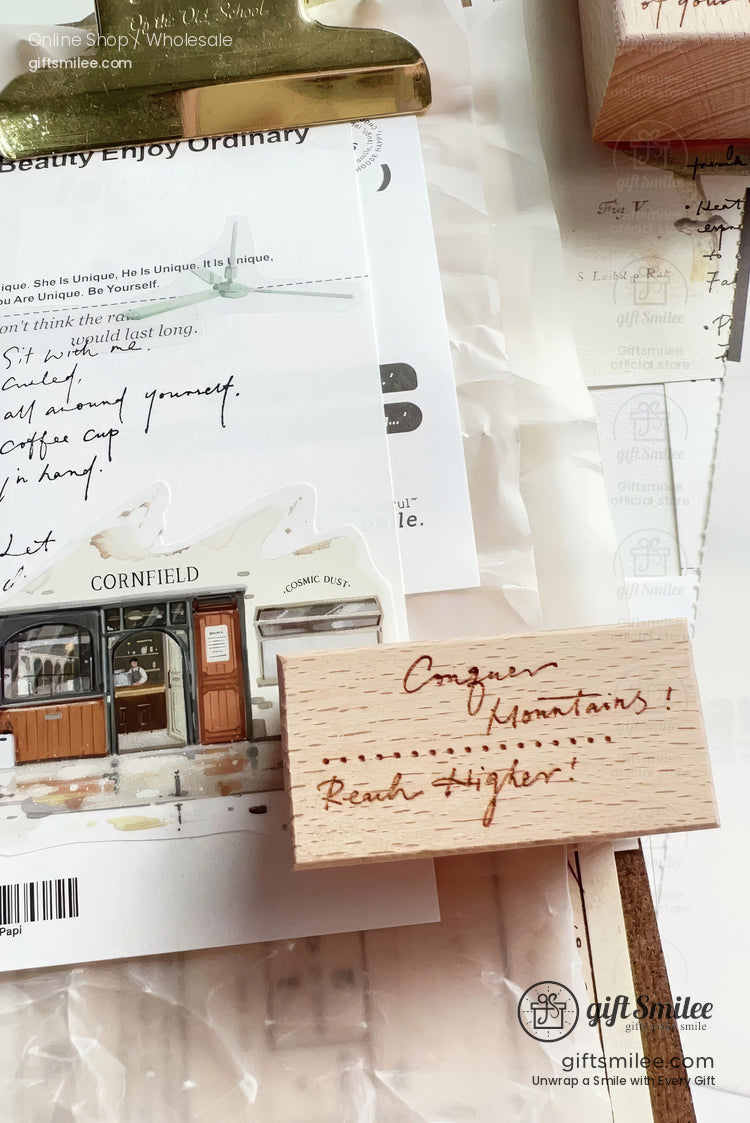 On the Old School
Online Shop / Wholesale
giftsmilee.com
of your
Beauty Enjoy Ordinary
Fig. V.
• Heat
ique. She Is Unique, He Is Unique. It Is Unique,
ou Are Unique. Be Yourself.
on't think the rain
would last long.
Sit with me.
Curled,
all around yourself.
coffee cup
in hand.
Let
ul~
le.
CORNFIELD
·COSMIC DUST·
Conquer
Mountains!
Reach Higher!
Papi
gift Smilee
giftsmilee.com
Unwrap a Smile with Every Gift
gift Smilee
Giftsmilee
official store
gift Smilee
Giftsmilee
official store